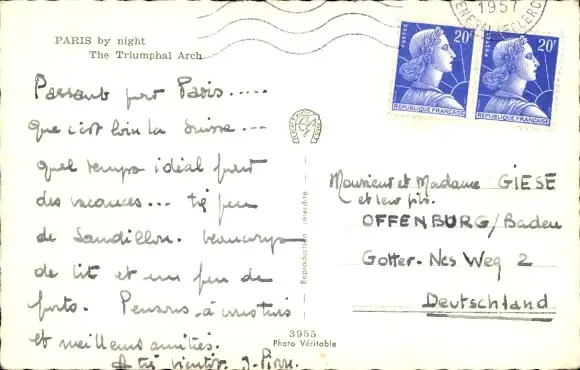 PARIS by night
The Triumphal Arch
1957
POSTES 20F
RÉPUBLIQUE FRANÇAISE
POSTES 20F
RÉPUBLIQUE FRANÇAISE
Passant par Paris.....
que c'est loin la Suisse...
quel temps idéal pour
des vacances... très peu
de beaucoup
de lit et un peu de
Pensons à vous trois
et meilleures amitiés.
A très bientôt. J-Pierre.
Reproduction interdite
3955
Photo Véritable
Monsieur et Madame GIESE
et leur fils.
OFFENBURG/Baden
Weg 2
Deutschland